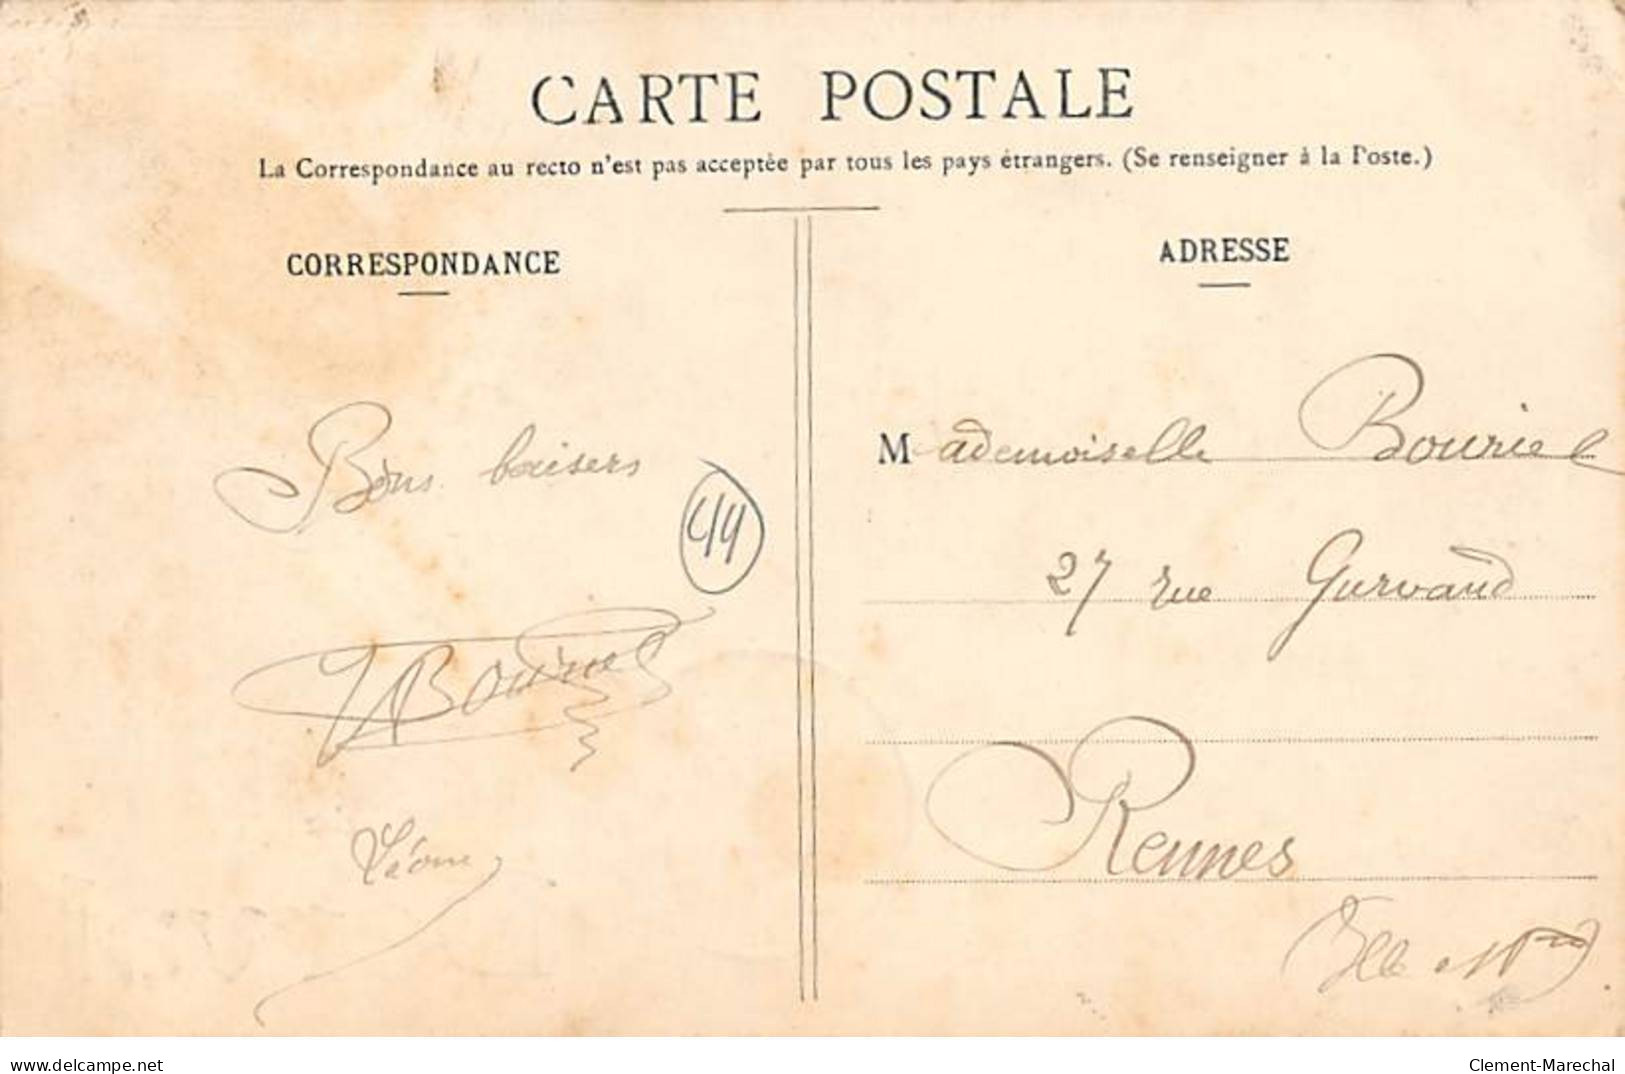 CARTE POSTALE
La Correspondance au recto n'est pas acceptée par tous les pays étrangers. (Se renseigner à la Poste.)
CORRESPONDANCE
Bons baisers
44
Bouriel
Léone
ADRESSE
Mademoiselle Bouriel
27 rue Gurvand
Rennes
Ille et
www.delcampe.net
Clement-Marechal